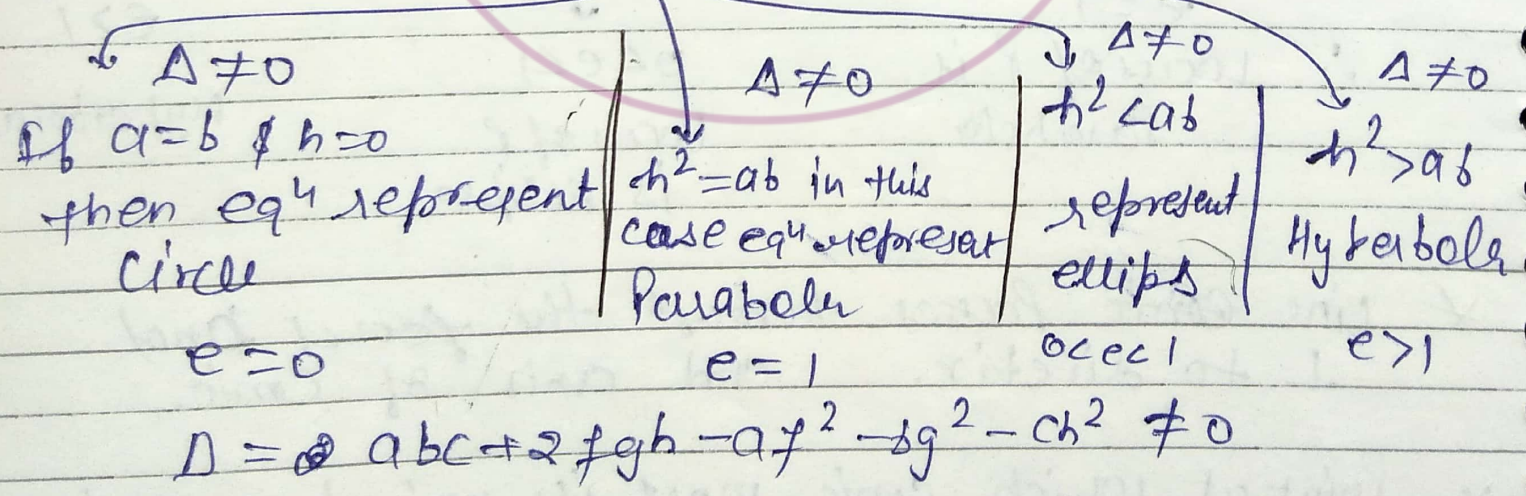 Δ ≠ 0
If a=b & h=0
then eqⁿ represent
Circle
e = 0
Δ ≠ 0
h² = ab in this
case eqⁿ represent
Parabola
e = 1
Δ ≠ 0
h² < ab
represent
ellips
0<e<1
Δ ≠ 0
h² > ab
Hyperbola
e>1
Δ = abc + 2fgh - af² - bg² - ch² ≠ 0